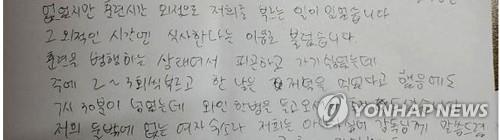 없었지만 훈련시간 외적으로 저희를 부르는 일이 있었습니다
그 외적인 시간엔 식사한다는 이유로 불렀습니다
훈련을 병행하는 상태여서 피곤하고 가기 싫었는데
주에 2~3회씩 부르고 한 날은 저녁을 먹었다고 했음에도
7시 30분이 넘었는데 와인 한병을 들고
저희 둘밖에 없는 여자숙소나 저희는
YONHAP NEWS